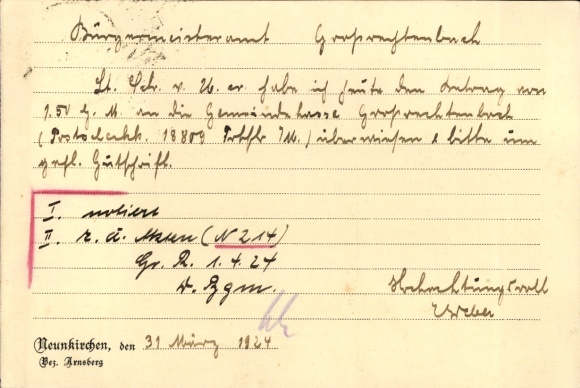 Bürgermeisteramt Großrechtenbach
Lt. Schr. v. 26. er. habe ich heute den Betrag von
1.50 G. M an die Gemeindekasse Großrechtenbach
(Postscheckk. 18803 Frkft. /M.) überwiesen & bitte um
gefl. Gutschrift.
I. notiert
II. z. d. Akten (N 214)
Gr. R. 1.4.24
D. Bgm.
Hochachtungsvoll
Weber
Neunkirchen, den 31 März 1924
Bez. Arnsberg